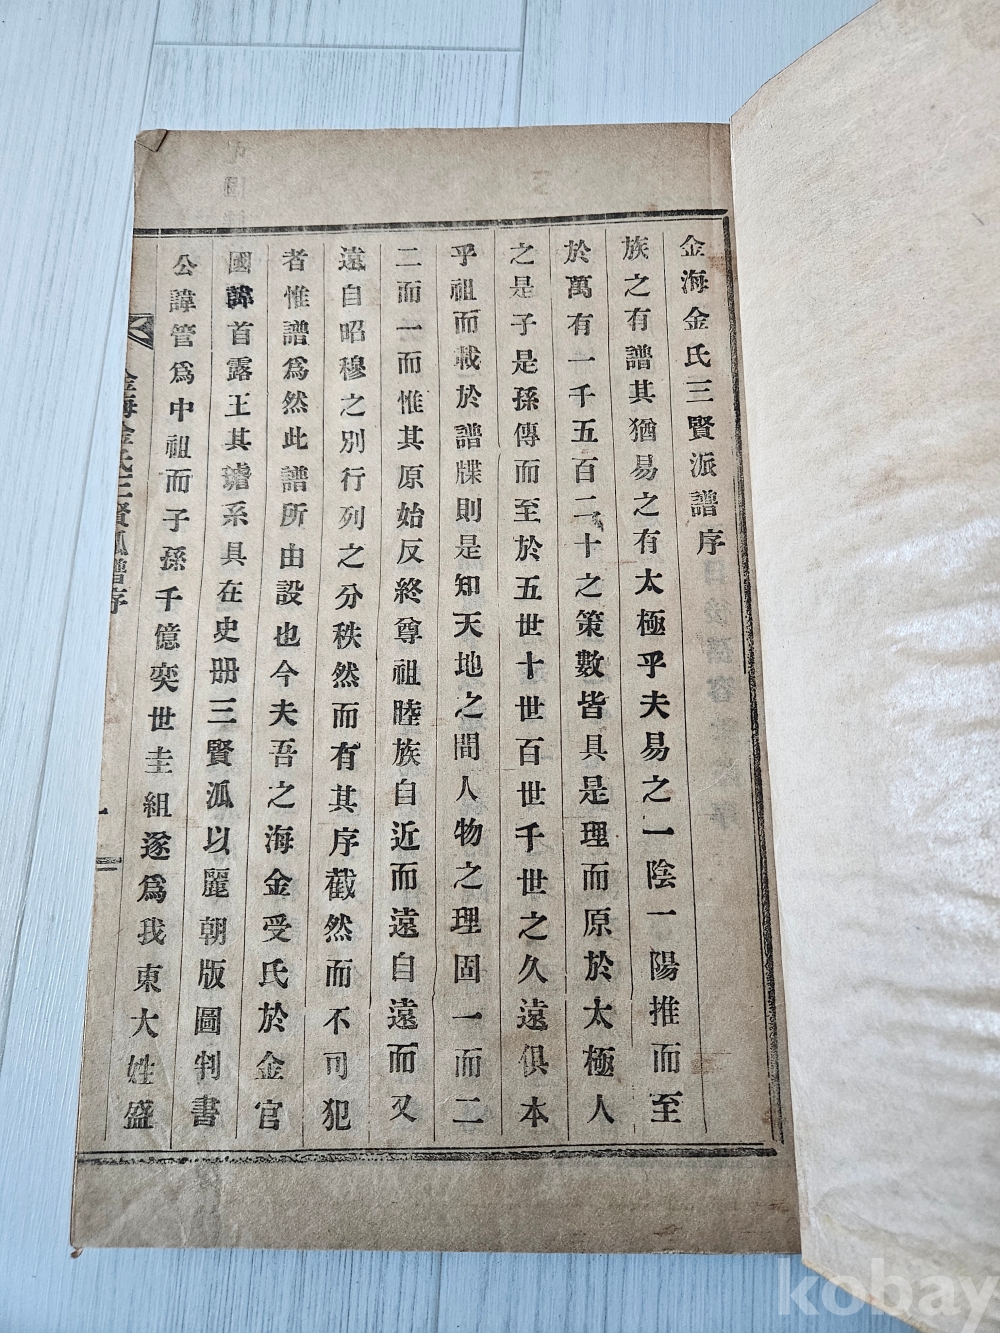 金海金氏三賢派譜序
族之有譜其猶易之有太極乎夫易之一陰一陽推而至
於萬有一千五百二十之策數皆具是理而原於太極人
之是子是孫傳而至於五世十世百世千世之久遠俱本
乎祖而載於譜牒則是知天地之間人物之理固一而二
二而一而惟其原始反終尊祖睦族自近而遠自遠而又
遠自昭穆之別行列之分秩然而有其序截然而不可犯
者惟譜爲然此譜所由設也今夫吾之海金受氏於金官
國諱首露王其璿系具在史册三賢派以麗朝版圖判書
公諱管爲中祖而子孫千億奕世圭組遂爲我東大姓盛
金海金氏三賢派譜序
一
kobay